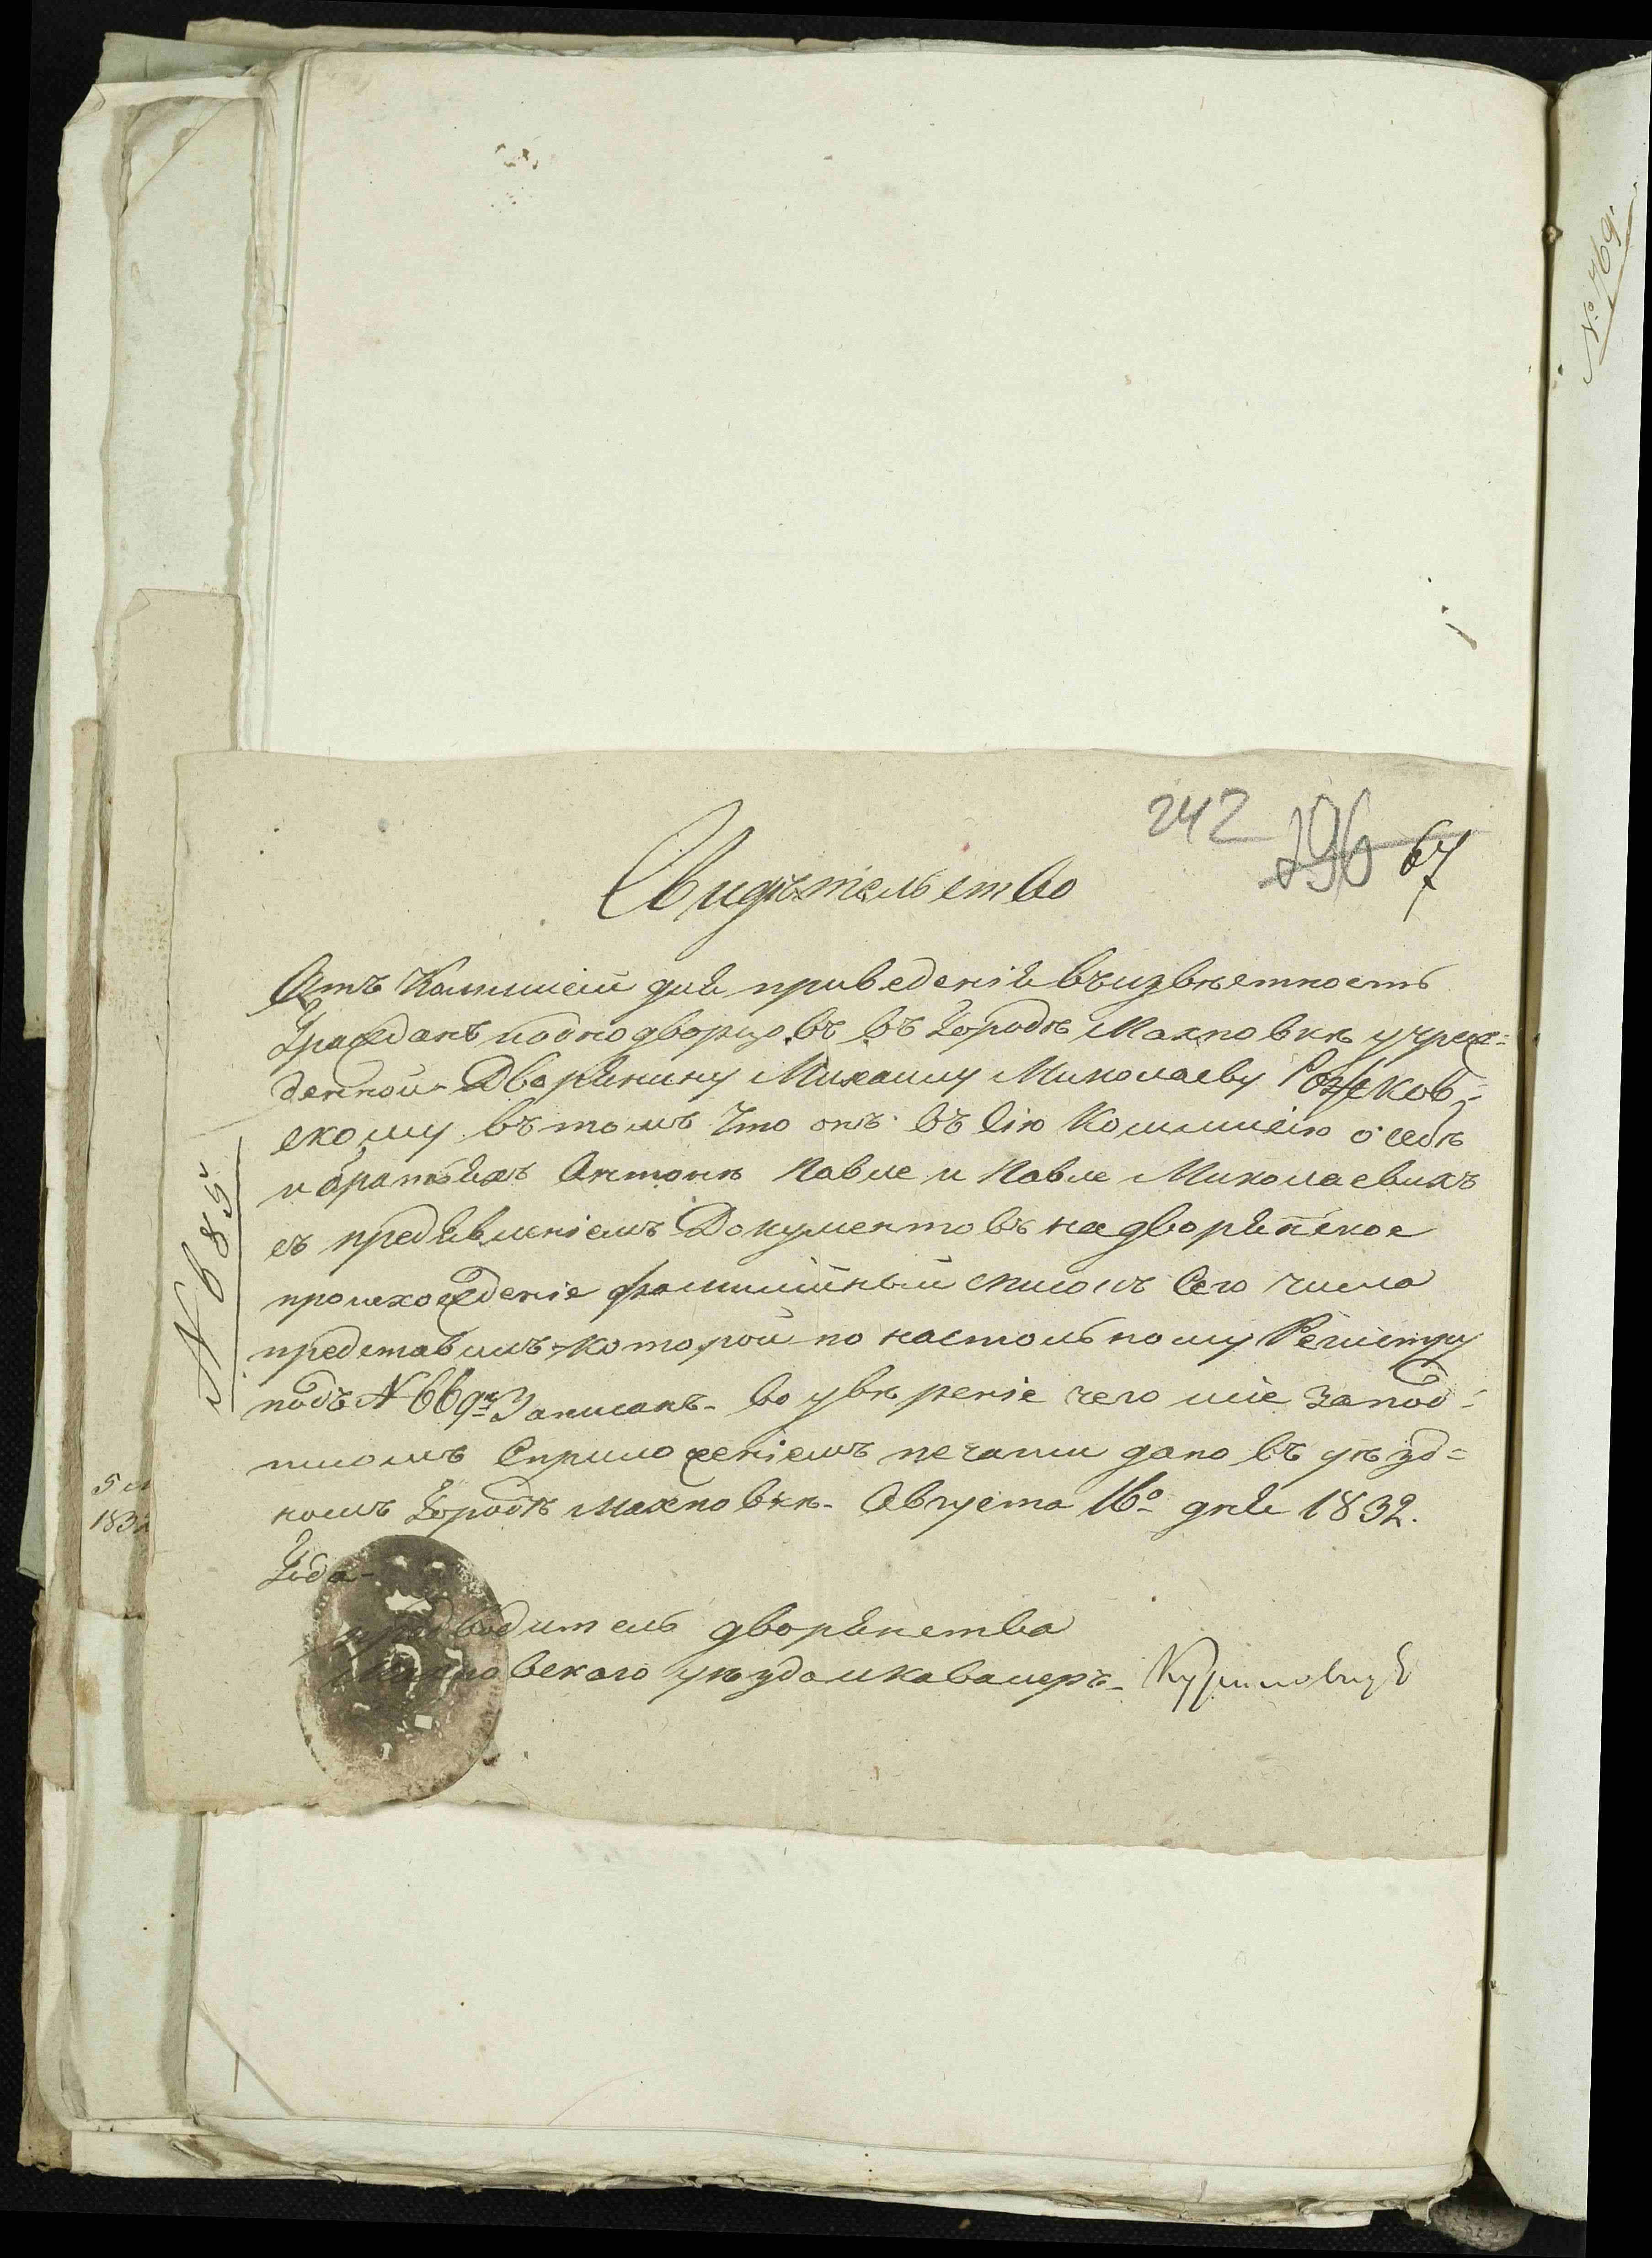 242 196 67
Свидѣтельство
Отъ Коммисіи для приведенія въ извѣстность
Гражданъ иоднодворцовъ въ Городѣ Махновкѣ учреж=
денной - Дворянину Михаилу Миколаеву Рожков=
скому въ томъ Что онъ въ Сію Коммисію о себѣ
и братьяхъ Антонѣ Павле и Павле Миколаевихъ
съ предъявленіемъ Документовъ на дворянское
происхожденіе фамилійный списокъ Сего числа
представилъ - которой по настольному Регистру
подъ N 669мъ Записанъ - во увѣреніе чего сіе Запод=
писомъ Сприложеніемъ печати дано въ уѣзд=
номъ Городѣ Махновкѣ - Августа 16о дня 1832.
Года -
предводитель дворянства
Махновского уѣзда икавалеръ -
N 685
5
183
№ 769.